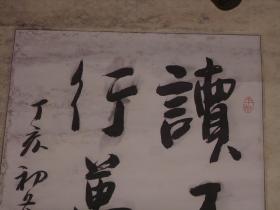 讀
行萬
丁亥初